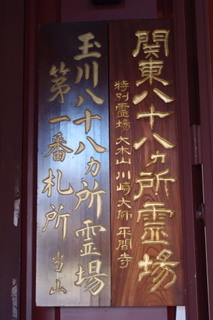 関東八十八ヵ所霊場
特別霊場 大本山 川崎大師 平間寺
玉川八十八ヵ所霊場
第一番札所 当山